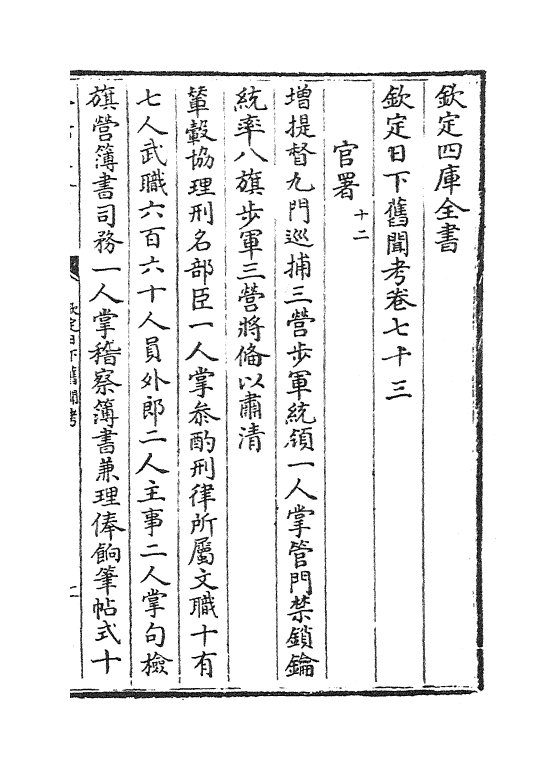 欽定四庫全書
欽定日下舊聞考卷七十三
官署
十二
增提督九門巡捕三營步軍統領一人掌管門禁鎖鑰
統率八旗步軍三營將備以肅清
輦轂協理刑名部臣一人掌叅酌刑律所屬文職十有
七人武職六百六十人員外郎二人主事二人掌句檢
旗營簿書司務一人掌稽察簿書兼理俸餉筆帖式十
欽定日下舊聞考